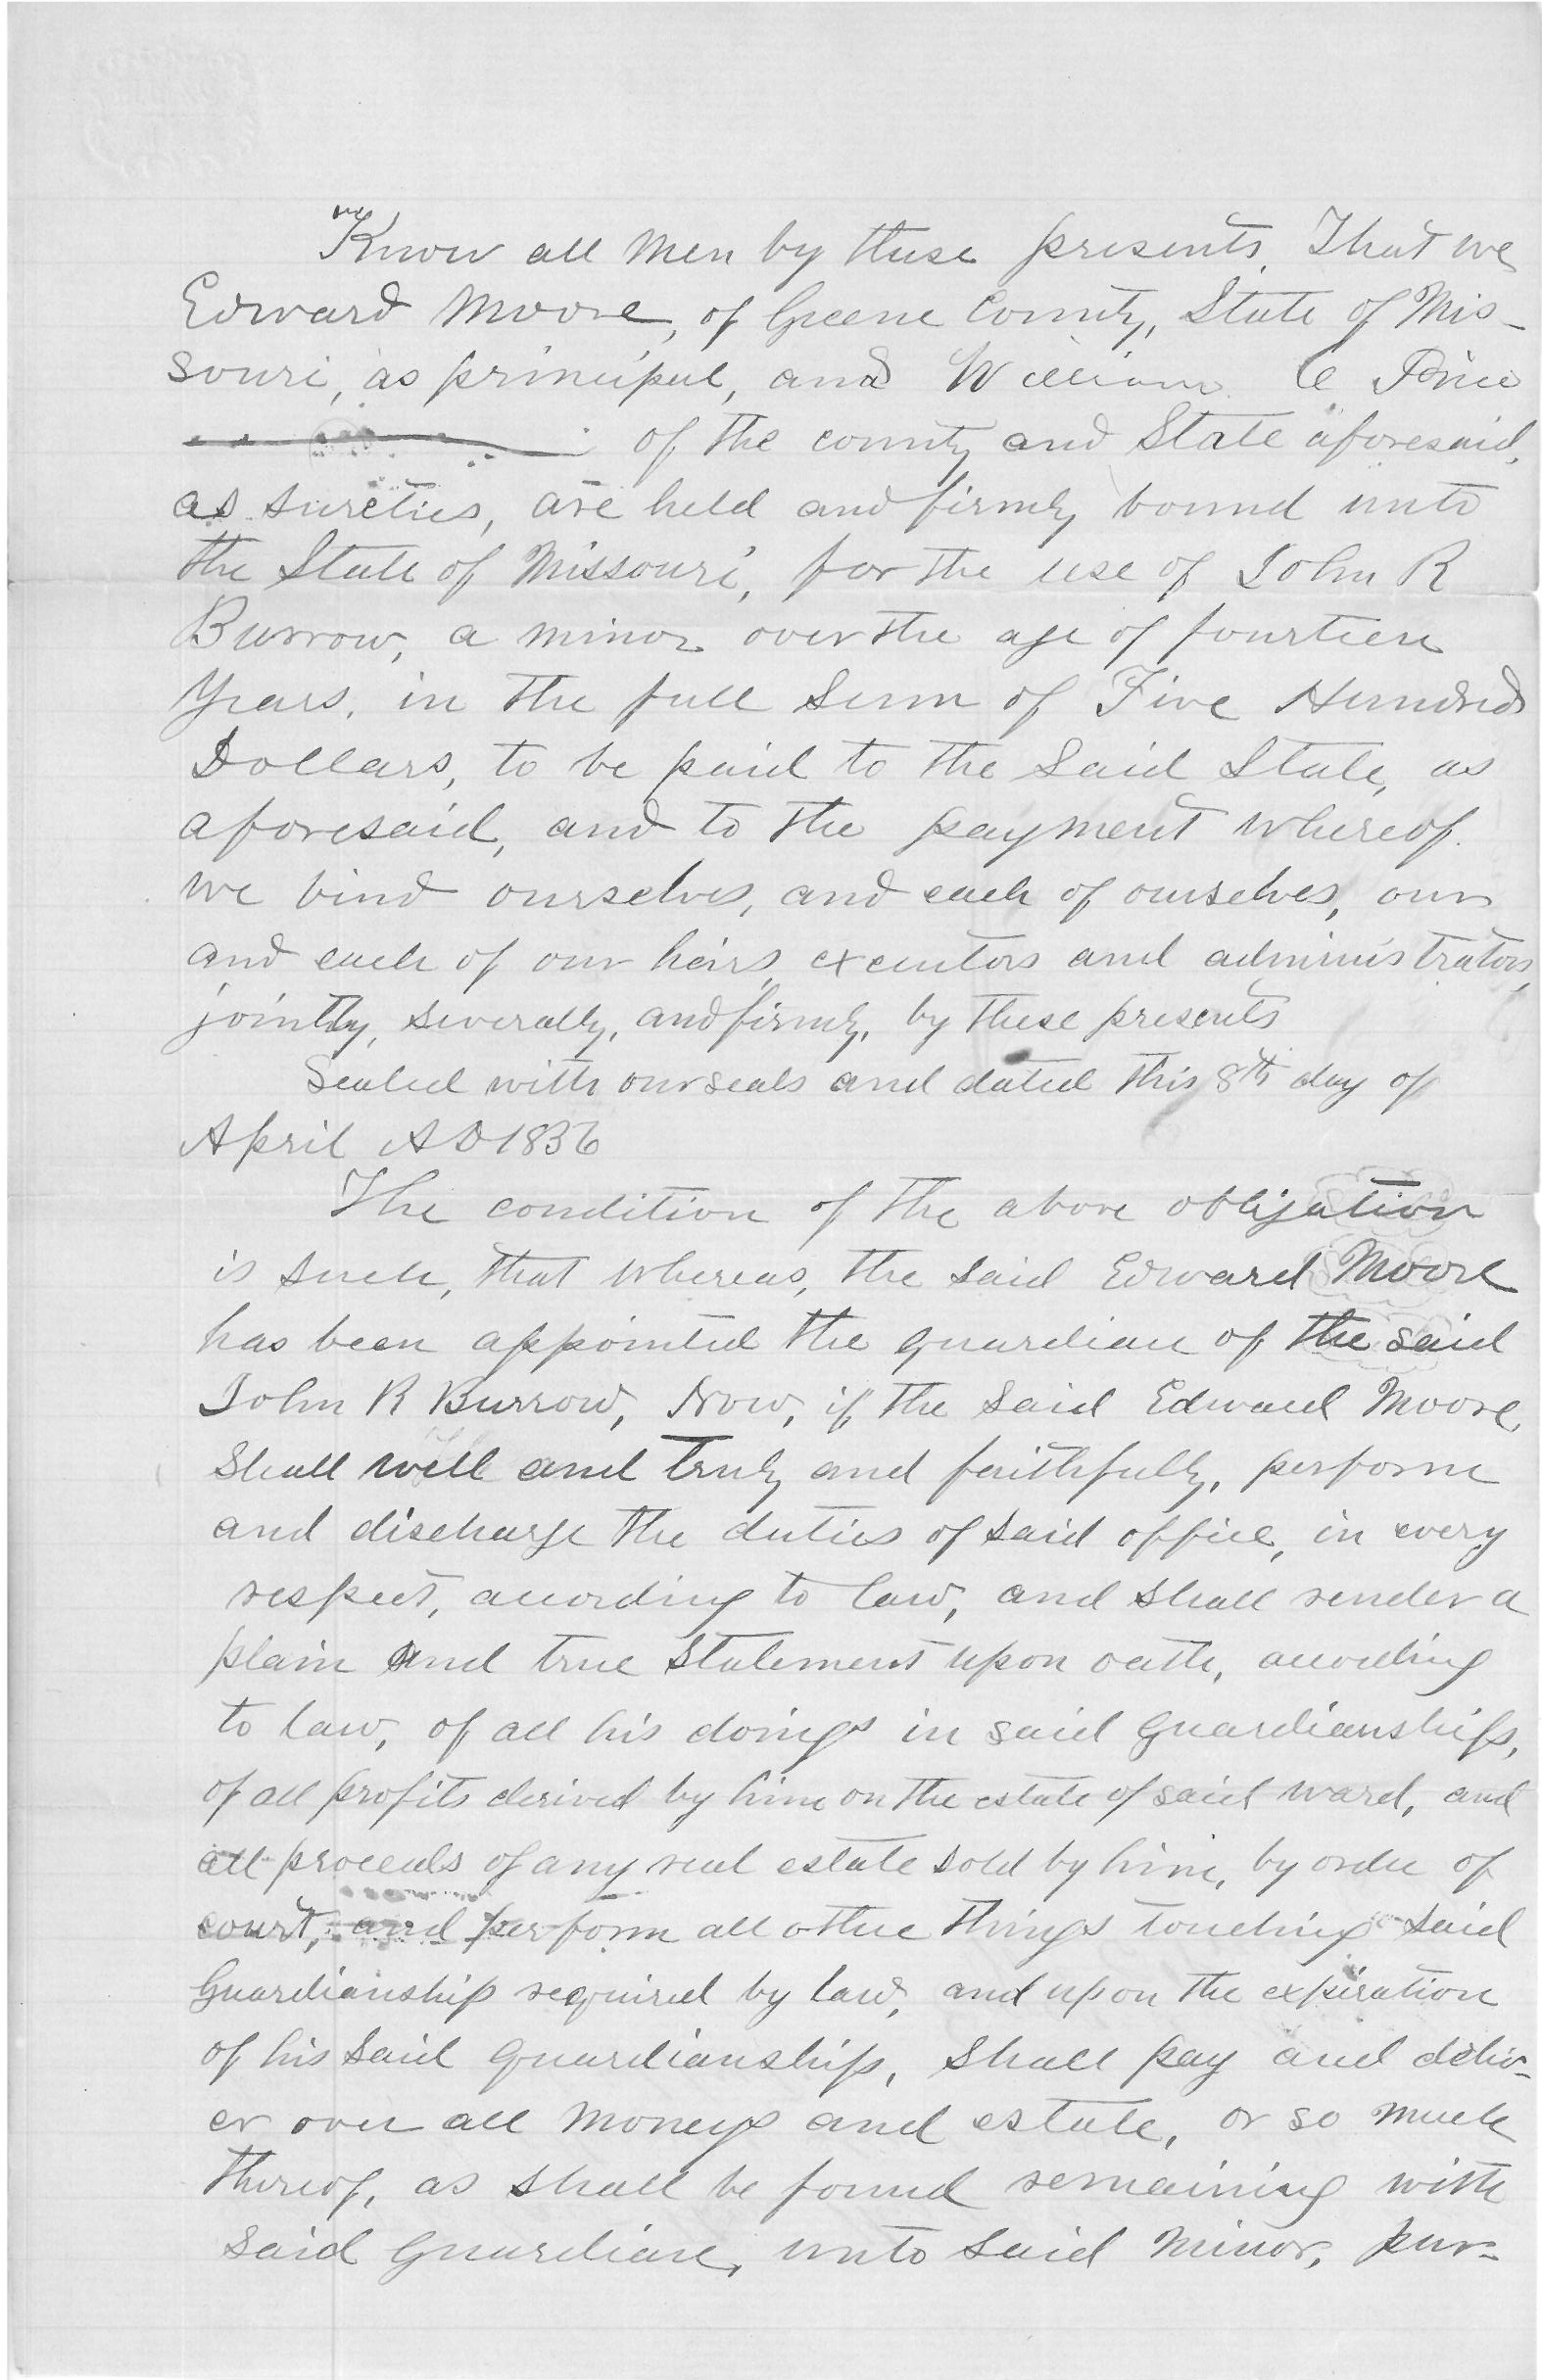 Know all men by these presents, That we
Edward Moore, of Greene County, State of Mis-
souri, as principal, and William C Price
of the county and State aforesaid,
as sureties, are held and firmly bound unto
the State of Missouri, for the use of John R
Burrow, a minor over the age of fourteen
Years, in the full Sum of Five Hundred
Dollars, to be paid to the Said State, as
aforesaid, and to the payment whereof.
we bind ourselves, and each of ourselves, our
and each of our heirs, executors and administrators,
jointly, severally, and firmly, by these presents
Sealed with our seals and dated this 8th day of
April AD 1836
The condition of the above obligation
is such, that whereas, the said Edward Moore
has been appointed the guardian of the said
John R Burrow, Now, if the said Edward Moore
Shall well and truly and faithfully, perform
and discharge the duties of said office, in every
respect, according to law, and shall render a
plain and true statement upon oath, according
to law, of all his doings in said guardianship,
of all profits derived by him on the estate of said ward, and
all proceeds of any real estate sold by him, by order of
court, and perform all other things touching said
Guardianship required by law, and upon the expiration
of his said guardianship, shall pay and deliv-
er over all moneys and estate, or so much
thereof, as shall be found remaining with
said Guardian, unto said minor, pur-